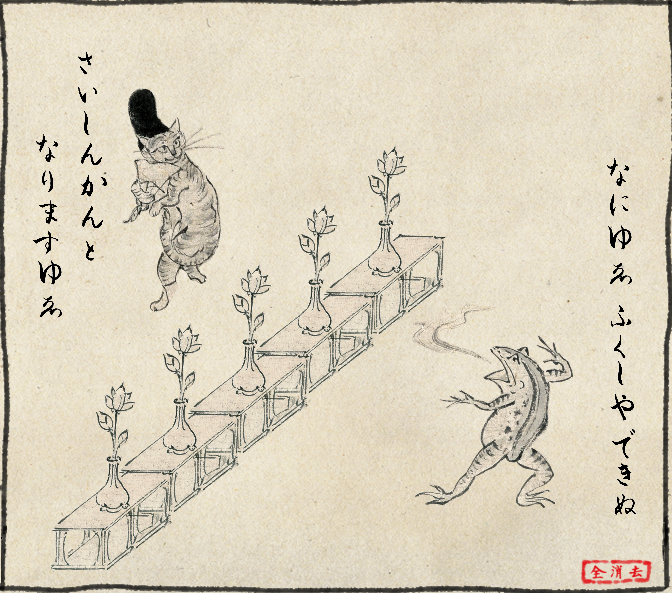 なにゆゑ ふくしやできぬ
さいしんがんと
なりますゆゑ
全消去